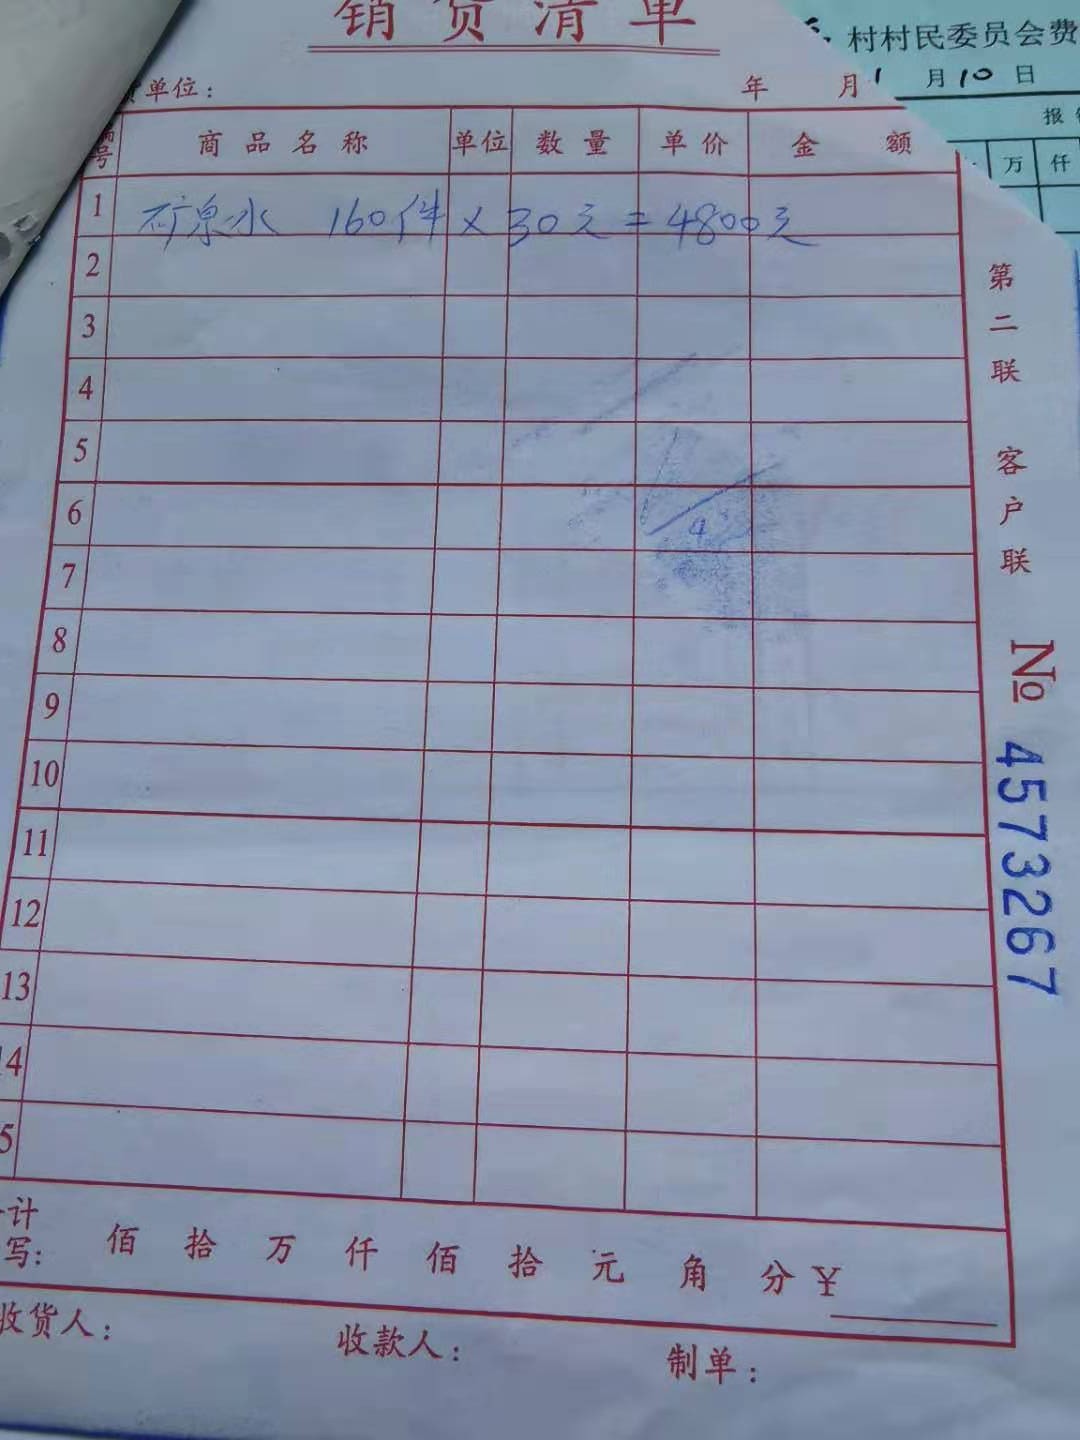 销货清单
村村民委员会费
货单位：
年 月
1 月 10 日
报
编号 商品名称 单位 数量 单价 金额
万 仟
1 矿泉水 160件 × 30元 = 4800元
2
3
4
5
6
7
8
9
10
11
12
13
14
5
计
写: 佰 拾 万 仟 佰 拾 元 角 分 ¥
收货人： 收款人： 制单：
第二联 客户联
№ 4573267